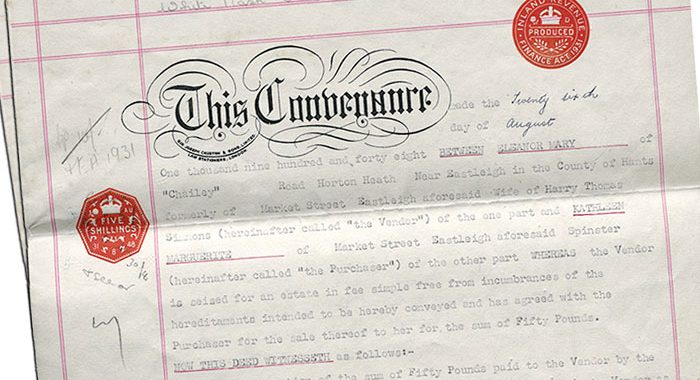 White
INLAND REVENUE
PRODUCED
FINANCE ACT. 1931.
This Conveyance made the Twenty sixth
SIR JOSEPH CAUSTON & SONS, LIMITED
LAW STATIONERS, LONDON
day of August
One thousand nine hundred and forty eight BETWEEN ELEANOR MARY of
"Chailey" Road Horton Heath Near Eastleigh in the County of Hants
formerly of Market Street Eastleigh aforesaid Wife of Harry Thomas
Simmons (hereinafter called "the Vendor") of the one part and KATHLEEN
MARGUERITE of Market Street Eastleigh aforesaid Spinster
(hereinafter called "the Purchaser") of the other part WHEREAS the Vendor
is seised for an estate in fee simple free from incumbrances of the
hereditaments intended to be hereby conveyed and has agreed with the
Purchaser for the sale thereof to her for the sum of Fifty Pounds.
NOW THIS DEED WITNESSETH as follows:-
of the sum of Fifty Pounds paid to the Vendor by the
1931
AU
FIVE
SHILLINGS
31 8 48